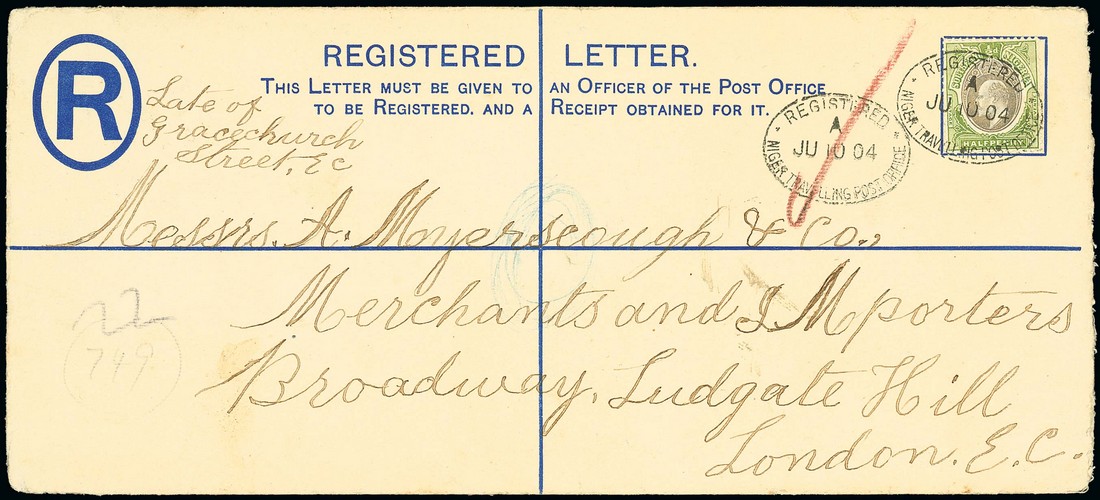 R
REGISTERED LETTER.
THIS LETTER MUST BE GIVEN TO AN OFFICER OF THE POST OFFICE
TO BE REGISTERED. AND A RECEIPT OBTAINED FOR IT.
Late of
Gracechurch
Street, E.C
REGISTERED
A
JU 10 04
NIGER TRAVELLING POST OFFICE
REGISTERED
A
JU 04
NIGER TRAVELLING POST
½d
SOUTHERN NIGERIA
HALFPENNY
Messrs. A. Myerscough & Co.,
Merchants and IMporters
Broadway, Ludgate Hill
London. E.C.
22
749